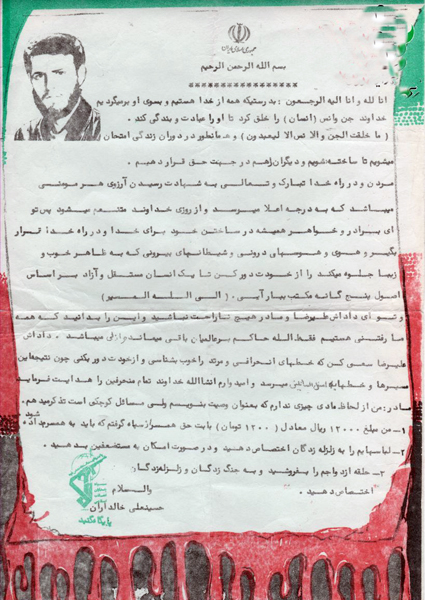 جمهوری اسلامی ایران
بسم الله الرحمن الرحیم
انا لله و انا الیه الرجعون: بدرستیکه همه از خدا هستیم و بسوی او برمیگردیم
خداوند جن وانس (انسان) را خلق کرد تا او را عبادت و بندگی کند.
(ما خلقت الجن و الانس الا لیعبدون) و همانطور در دوران زندگی امتحان
میشویم تا ساخته شویم و دیگران را هم در جهت حق قرار دهیم.
مردن و در راه خدا تبارک و تعالی به شهادت رسیدن آرزوی هر مومنی
میباشد که به درجه اعلا میرسد و از روزی خداوند متنعم میشود پس تو
ای برادر و خواهر همیشه در ساختن خود برای خدا و در راه خدا قرار
بگیر و هوی و هوسهای درونی و شیطانهای بیرونی که به ظاهر خوب و
زیبا جلوه میکند را از خود دور کن تا یک انسان مستقل و آزاد بر اساس
اصول پنج گانه مکتب ببار آیی. (الی الله المسیر)
و تو ای داداش علیرضا و مادر هیچ ناراحت نباشید و این را بدانید که همه
ما رفتنی هستیم فقط الله حاکم بر عالمیان باقی میماند و ازلی میباشد. داداش
علیرضا سعی کن که خطهای انحرافی و مرتد را خوب بشناسی و از خودت دور بکنی چون نتیجه این
مسیرها و خطها به میرسد و امیدوارم انشاالله خداوند تمام منحرفین را هدایت فرماید
مادر: من از لحاظ مادی چیزی ندارم که بعنوان وصیت بنویسم ولی مسائل کوچکی است تذکر میدهم.
۱- من مبلغ ۱۲۰۰۰ ریال معادل (۱۲۰۰ تومان) بابت حق همسر از سپاه گرفتم که باید به همسرم داده شود
۲- لباسهایم را به زلزله زدگان اختصاص دهید و در صورت امکان به مستضعفین بدهید.
۳- حلقه ازدواجم را بفروشید و به جنگ زدگان و زلزله زدگان
اختصاص دهید.
والسلام
حسینعلی خالداران